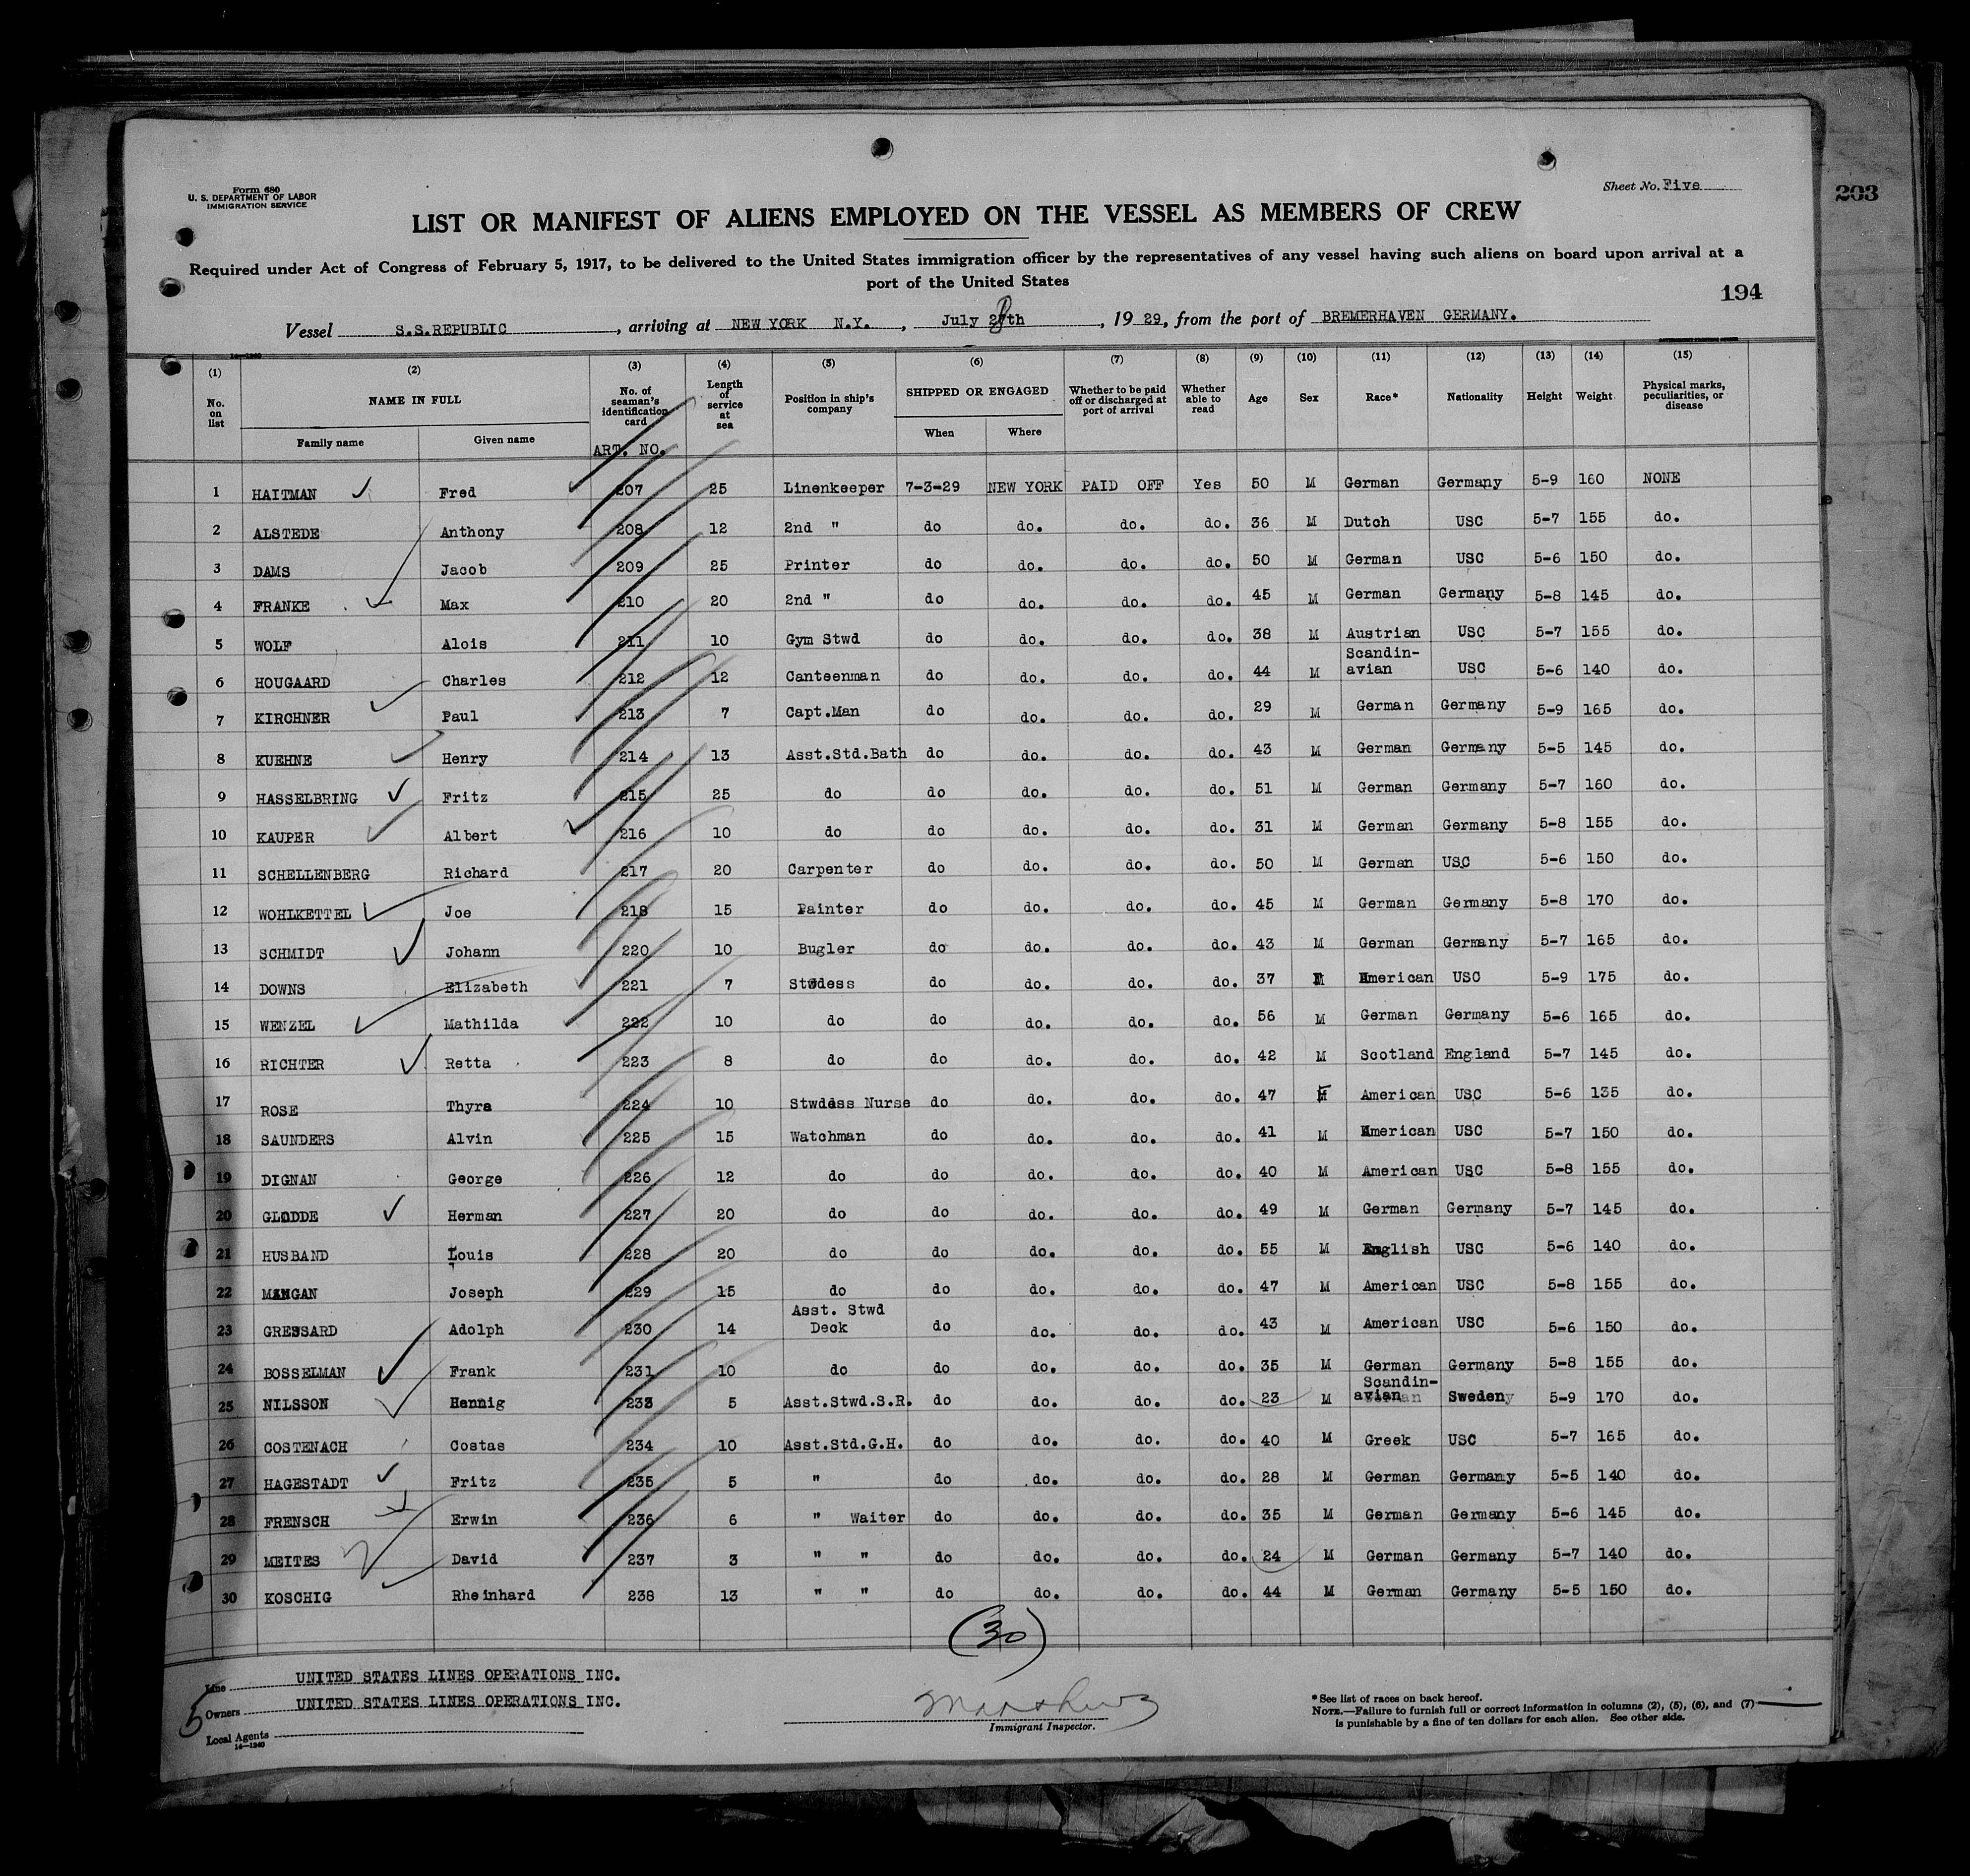 Form 680
U. S. DEPARTMENT OF LABOR
IMMIGRATION SERVICE
Sheet No. Five
203
LIST OR MANIFEST OF ALIENS EMPLOYED ON THE VESSEL AS MEMBERS OF CREW
Required under Act of Congress of February 5, 1917, to be delivered to the United States immigration officer by the representatives of any vessel having such aliens on board upon arrival at a
port of the United States
194
Vessel S.S.REPUBLIC, arriving at NEW YORK N.Y., July 28th, 1929, from the port of BREMERHAVEN GERMANY.
14-1240
(1) (2) (3) (4) (5) (6) (7) (8) (9) (10) (11) (12) (13) (14) (15)
No. on list NAME IN FULL Family name Given name No. of seaman's identification card ART. NO. Length of service at sea Position in ship's company SHIPPED OR ENGAGED When Where Whether to be paid off or discharged at port of arrival Whether able to read Age Sex Race* Nationality Height Weight Physical marks, peculiarities, or disease
1 HAITMAN Fred 207 25 Linenkeeper 7-3-29 NEW YORK PAID OFF Yes 50 M German Germany 5-9 160 NONE
2 ALSTEDE Anthony 208 12 2nd " do do. do. do. 36 M Dutch USC 5-7 155 do.
3 DAMS Jacob 209 25 Printer do do. do. do. 50 M German USC 5-6 150 do.
4 FRANKE Max 210 20 2nd " do do. do. do. 45 M German Germany 5-8 145 do.
5 WOLF Alois 211 10 Gym Stwd do do. do. do. 38 M Austrian USC 5-7 155 do.
6 HOUGAARD Charles 212 12 Canteenman do do. do. do. 44 M Scandin-avian USC 5-6 140 do.
7 KIRCHNER Paul 213 7 Capt.Man do do. do. do. 29 M German Germany 5-9 165 do.
8 KUEHNE Henry 214 13 Asst.Std.Bath do do. do. do. 43 M German Germany 5-5 145 do.
9 HASSELBRING Fritz 215 25 do do do. do. do. 51 M German Germany 5-7 160 do.
10 KAUPER Albert 216 10 do do do. do. do. 31 M German Germany 5-8 155 do.
11 SCHELLENBERG Richard 217 20 Carpenter do do. do. do. 50 M German USC 5-6 150 do.
12 WOHLKETTEL Joe 218 15 Painter do do. do. do. 45 M German Germany 5-8 170 do.
13 SCHMIDT Johann 220 10 Bugler do do. do. do. 43 M German Germany 5-7 165 do.
14 DOWNS Elizabeth 221 7 Stwdess do do. do. do. 37 American USC 5-9 175 do.
15 WENZEL Mathilda 222 10 do do do. do. do. 56 M German Germany 5-6 165 do.
16 RICHTER Retta 223 8 do do do. do. do. 42 M Scotland England 5-7 145 do.
17 ROSE Thyra 224 10 Stwdess Nurse do do. do. do. 47 F American USC 5-6 135 do.
18 SAUNDERS Alvin 225 15 Watchman do do. do. do. 41 M American USC 5-7 150 do.
19 DIGNAN George 226 12 do do do. do. do. 40 M American USC 5-8 155 do.
20 GLODDE Herman 227 20 do do do. do. do. 49 M German Germany 5-7 145 do.
21 HUSBAND Louis 228 20 do do do. do. do. 55 M English USC 5-6 140 do.
22 MANGAN Joseph 229 15 do do do. do. do. 47 M American USC 5-8 155 do.
23 GRESSARD Adolph 230 14 Asst. Stwd Deck do do. do. do. 43 M American USC 5-6 150 do.
24 BOSSELMAN Frank 231 10 do do do. do. do. 35 M German Germany 5-8 155 do.
25 NILSSON Hennig 233 5 Asst.Stwd.S.R. do do. do. do. 23 M Scandin-avian Sweden 5-9 170 do.
26 COSTENACH Costas 234 10 Asst.Std.G.H. do do. do. do. 40 M Greek USC 5-7 165 do.
27 HAGESTADT Fritz 235 5 " do do. do. do. 28 M German Germany 5-5 140 do.
28 FRENSCH Erwin 236 6 " Waiter do do. do. do. 35 M German Germany 5-6 145 do.
29 MEITES David 237 3 " " do do. do. do. 24 M German Germany 5-7 140 do.
30 KOSCHIG Rheinhard 238 13 " " do do. do. do. 44 M German Germany 5-5 150 do.
(30)
Line UNITED STATES LINES OPERATIONS INC.
5 Owners UNITED STATES LINES OPERATIONS INC.
Local Agents
14-1240
Immigrant Inspector.
*See list of races on back hereof.
NOTE.—Failure to furnish full or correct information in columns (2), (5), (6), and (7)
is punishable by a fine of ten dollars for each alien. See other side.